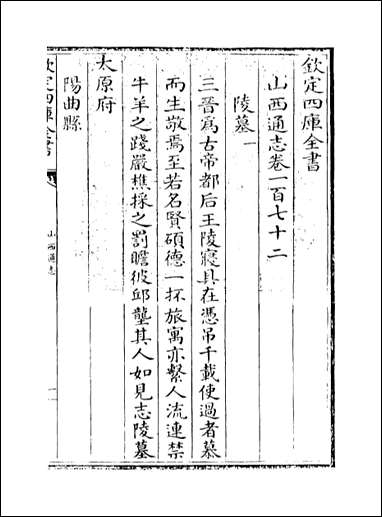 欽定四庫全書
山西通志卷一百七十二
陵墓一
三晉為古帝都后王陵寢具在憑吊千載使過者慕
而生敬焉至若名賢碩德一抔旅寓亦繫人流連禁
牛羊之踐嚴樵採之罰瞻彼邱壟其人如見志陵墓
太原府
陽曲縣
欽定四庫全書
山西通志